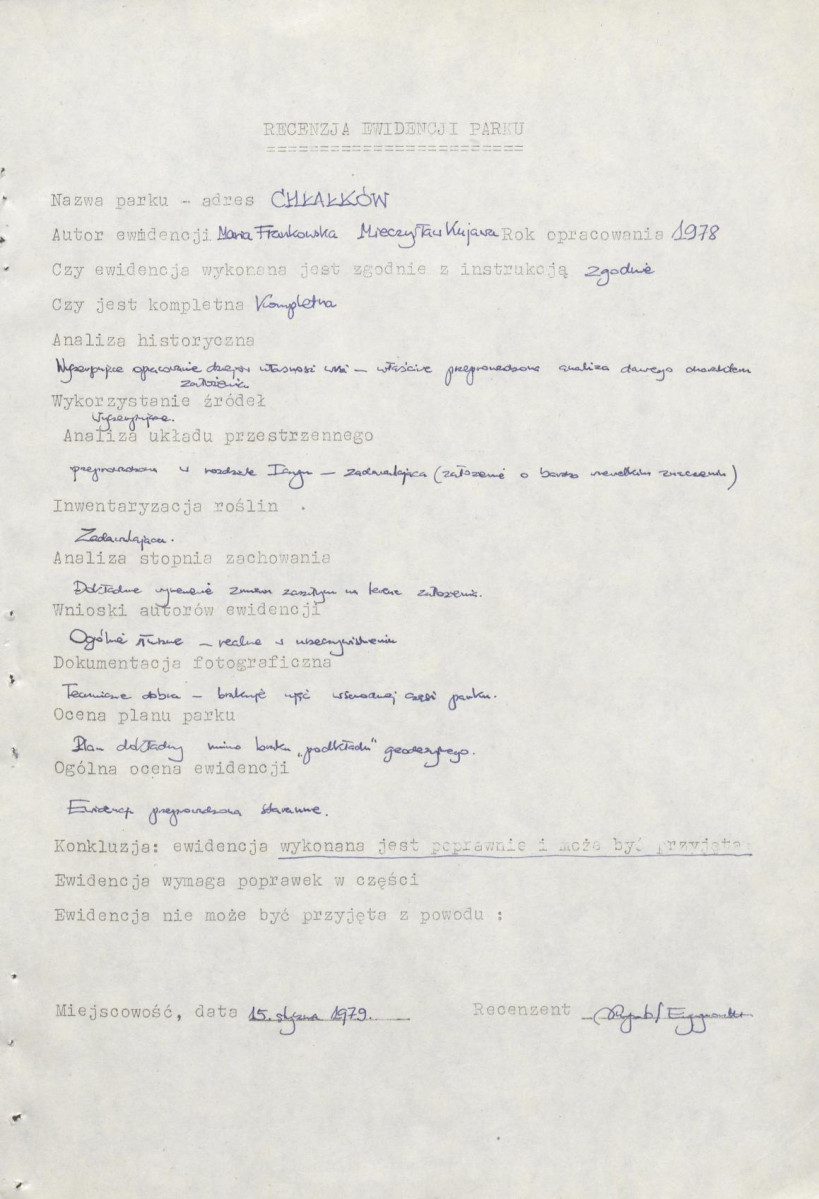 RECENZJA EWIDENCJI PARKU
========================
Nazwa parku - adres CHŁAŁKÓW
Autor ewidencji Maria Frankowska Mieczysław Kujawa Rok opracowania 1978
Czy ewidencja wykonana jest zgodnie z instrukcją zgodnie
Czy jest kompletna Kompletna
Analiza historyczna
Wyczerpujące opracowanie dziejów własności wsi - właściwe przeprowadzona analiza dawnego charakteru
założenia
Wykorzystanie źródeł
Wyczerpujące.
Analiza układu przestrzennego
przeprowadzona w - zadawalająca (założenie o bardzo niewielkim znaczeniu)
Inwentaryzacja roślin
Zadawalająca.
Analiza stopnia zachowania
Dokładne zmian zaszłych na terenie założenia.
Wnioski autorów ewidencji
Ogólnie słuszne - realne w urzeczywistnieniu
Dokumentacja fotograficzna
Technicznie dobra - ujęć wschodniej części parku.
Ocena planu parku
Plan dokładny mimo braku "podkładu" geodezyjnego.
Ogólna ocena ewidencji
Ewidencja przeprowadzona starannie.
Konkluzja: ewidencja wykonana jest poprawnie i może być przyjęta
Ewidencja wymaga poprawek w części
Ewidencja nie może być przyjęta z powodu :
Miejscowość, data 15. stycznia 1979. Recenzent